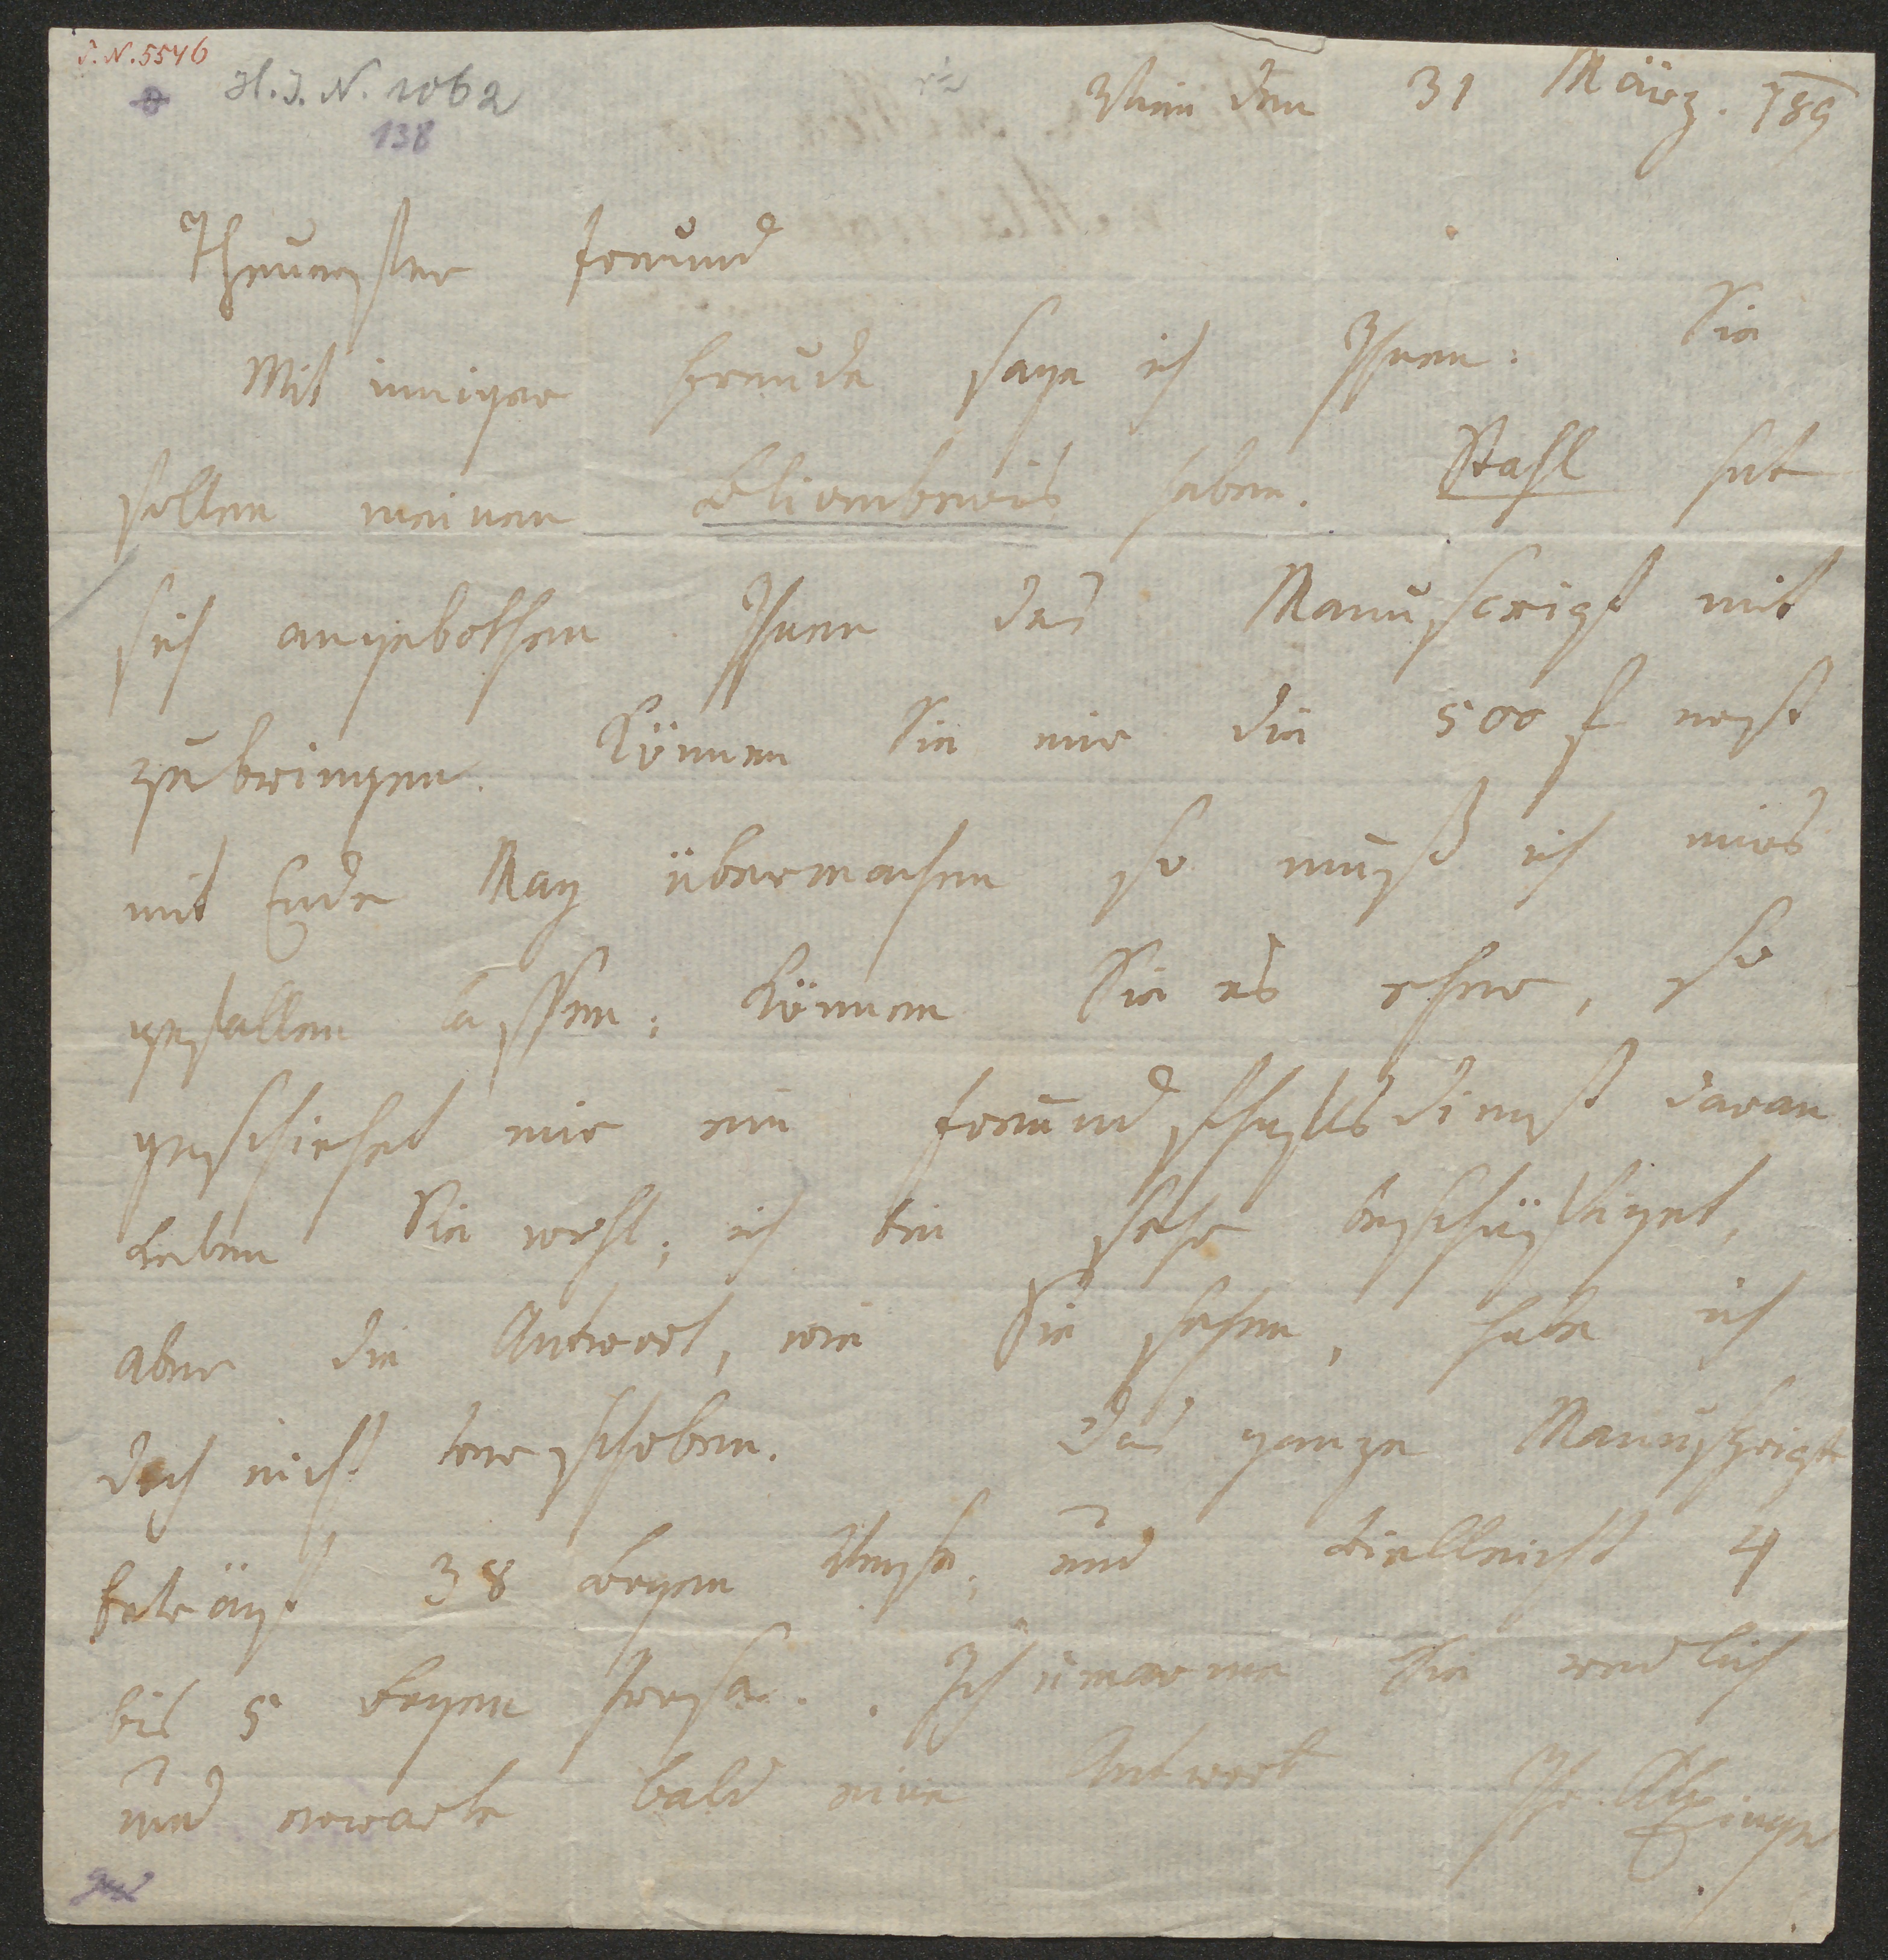 I. N. 5546
H. I. N. 1062
138
Wien den 31 März. 789
Theuerster Freund
Mit inniger Freude sage ich Ihnen: Sie
sollen meinen Bliomberis haben. Stahl hat
sich angebothen Ihnen das Manuscript mit
zubringen. Können Sie mir die 500 f erst
mit Ende May übermachen so muß ich mirs
gefallen lassen; können Sie es eher, so
geschiehet mir ein Freundschaftsdienst daran
Leben Sie wohl; ich bin sehr beschäftiget,
aber die Antwort, wie Sie sehen, habe ich
doch nicht verschoben. Das ganze Manuskript
beträgt 38 Bogen Verse, und vielleicht 4
bis 5 Bogen Prosa. Ich umarme Sie redlich
und erwarte bald eine Antwort Ihr Alxinger